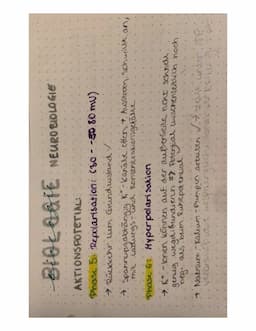 BIOLOGIE NEUROBIOLOGIE
AKTIONSPOTETIAL:
Phase 5: Repolarisation: (30 - -80 mV)
→ Rückkehr zum Grundzustand /
→ Spannungsabhängig K⁺-Kanäle öffnen + K⁺ strömen,
mit Ladungs- und Konzentrationsgefälle
Phase 6: Hyperpolarisation
→ K⁺-Ionen können auf der Außenseite nicht schnell
genug weg diffundieren ⇒ Potenzial unterschreitet noch
neg. als beim Ruhepotenzial
→ Natrium-Kalium-Pumpen arbeiten